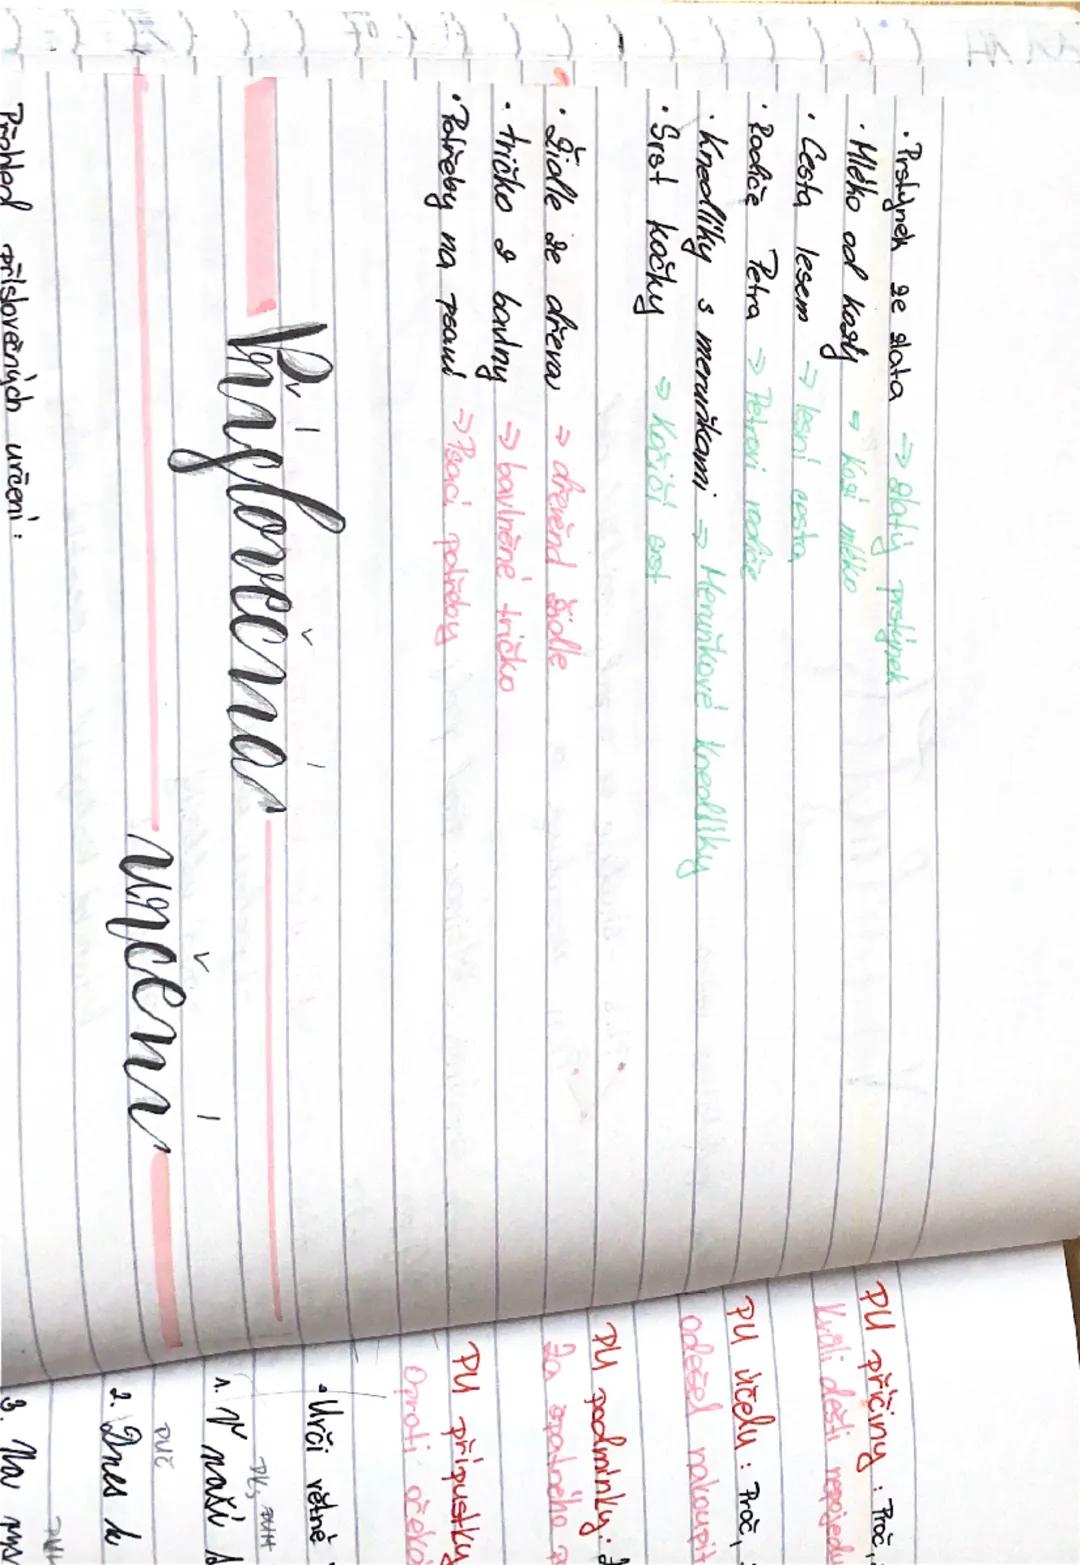 · Prstýnek ze zlata => zlatý prstýnek
· Mléko od kozy => Kozí mléko
· Cesta lesem => lesní cesta
· Rodiče Petra => Petrovi rodiče
· Knedlíky s meruňkami => Meruňkové knedlíky
· Srst kočky => Kočičí srst
· Židle ze dřeva => dřevěná židle
· tričko z bavlny => bavlněné tričko
· Potřeby na psaní => Psací potřeby
Příslovečná
určení
Přehled příslovečných určení:
PU příčiny : Proč,
Kvůli dešti nepojedu
PU účelu : Proč,
odešel nakoupit
PU podmínky :
Za špatného
PU přípustky
Oproti
· Urči větné
1. V naší
PUČ
2. Dnes
3. Na